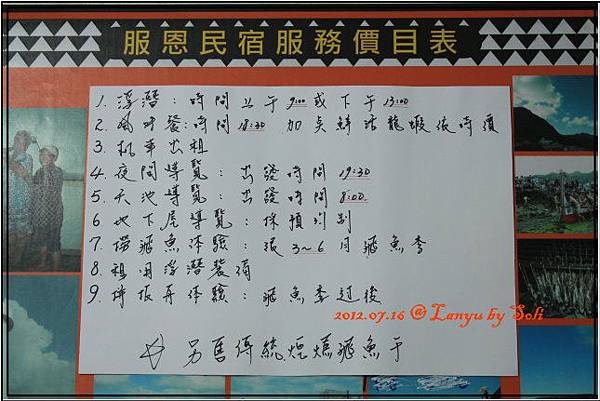 服恩民宿服務價目表
1. 浮潛:時間上午9:00或下午13:00
2. 風味餐:時間18:30 加點鮮活龍蝦依時價
3. 机車出租
4. 夜間導覽:出發時間19:30
5. 天池導覽:出發時間8:00.
6. 地下屋導覽:採預約制
7. 撈飛魚体驗:限3~6月飛魚季
8. 租用浮潛裝備
9. 拼板舟体驗:飛魚季過後
☆另售傳統煙燻飛魚干
2012.07.16 @ Lanyu by Soli